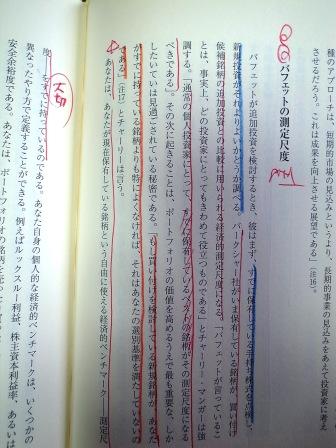 種のアプローチは、短期的市場の見込みというより、長期的事業の見込みをあえて投資家に考え
させるだろう。これは成果を向上させる展望である」(注16)。
バフェットの測定尺度
バフェットが追加投資を検討するとき、彼はまず、すでに保有している手持ち株式を点検し、
新規投資がそれよりよいかどうか調べる。バークシャー社がいま保有している銘柄が、買い付け
候補銘柄の追加投資との比較に用いられる経済的測定尺度になる。「バフェットが言っているこ
とは、事実上、どの投資家にとってもきわめて役立つものである」とチャーリー・マンガーは強
調する。「通常の個人投資家にとって、すでに保有しているベストの銘柄がその測定尺度になる
べきである」。その次に起きることは、ポートフォリオの価値を高めるうえで最も重要な、しか
したいていは見過ごされている秘密である。「もし買い付けを検討している新規銘柄が、あなた
がすでに持っている銘柄よりも特によくなければ、それはあなたの選別基準を満たしていないの
である」(注17)とチャーリーは言う。
あなたは、あなたが現在保有している銘柄という自由に使える経済的ベンチマーク――測定尺
度――をすでに持っているのである。あなた自身の個人的な経済的ベンチマークは、いくつかの
異なったやり方で定義することができる。例えばルックスルー利益、株主資本利益率、あるいは
安全余裕度である。あなたは、ポートフォリオの銘柄を売
大切